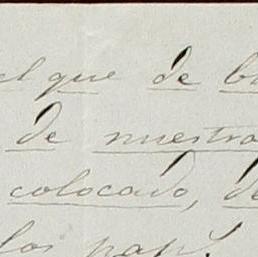 el que de
de nuestra
colocado, de
los